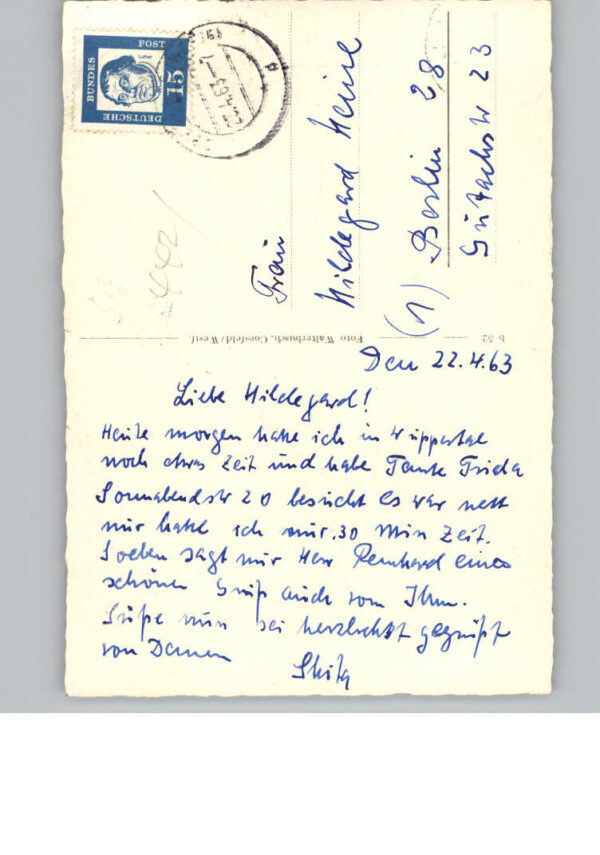 DEUTSCHE
BUNDES
POST
15
Frau
Hildegard Heine
(1) Berlin 28
Gutachstr 23
442
Foto Walterbusch, Coesfeld/Westf.
b 52
Den 22.4.63
Liebe Hildegard!
Heute morgen hatte ich in Wuppertal
noch etwas Zeit und habe Tante Frida
Sonnabendstr 20 besucht es war nett
nur hatte ich nur 30 Min Zeit.
Soeben sagt mir Herr Reinhard einen
schönen Gruß auch von Ihm.
Süße nun sei herzlichst gegrüßt
von Deinem